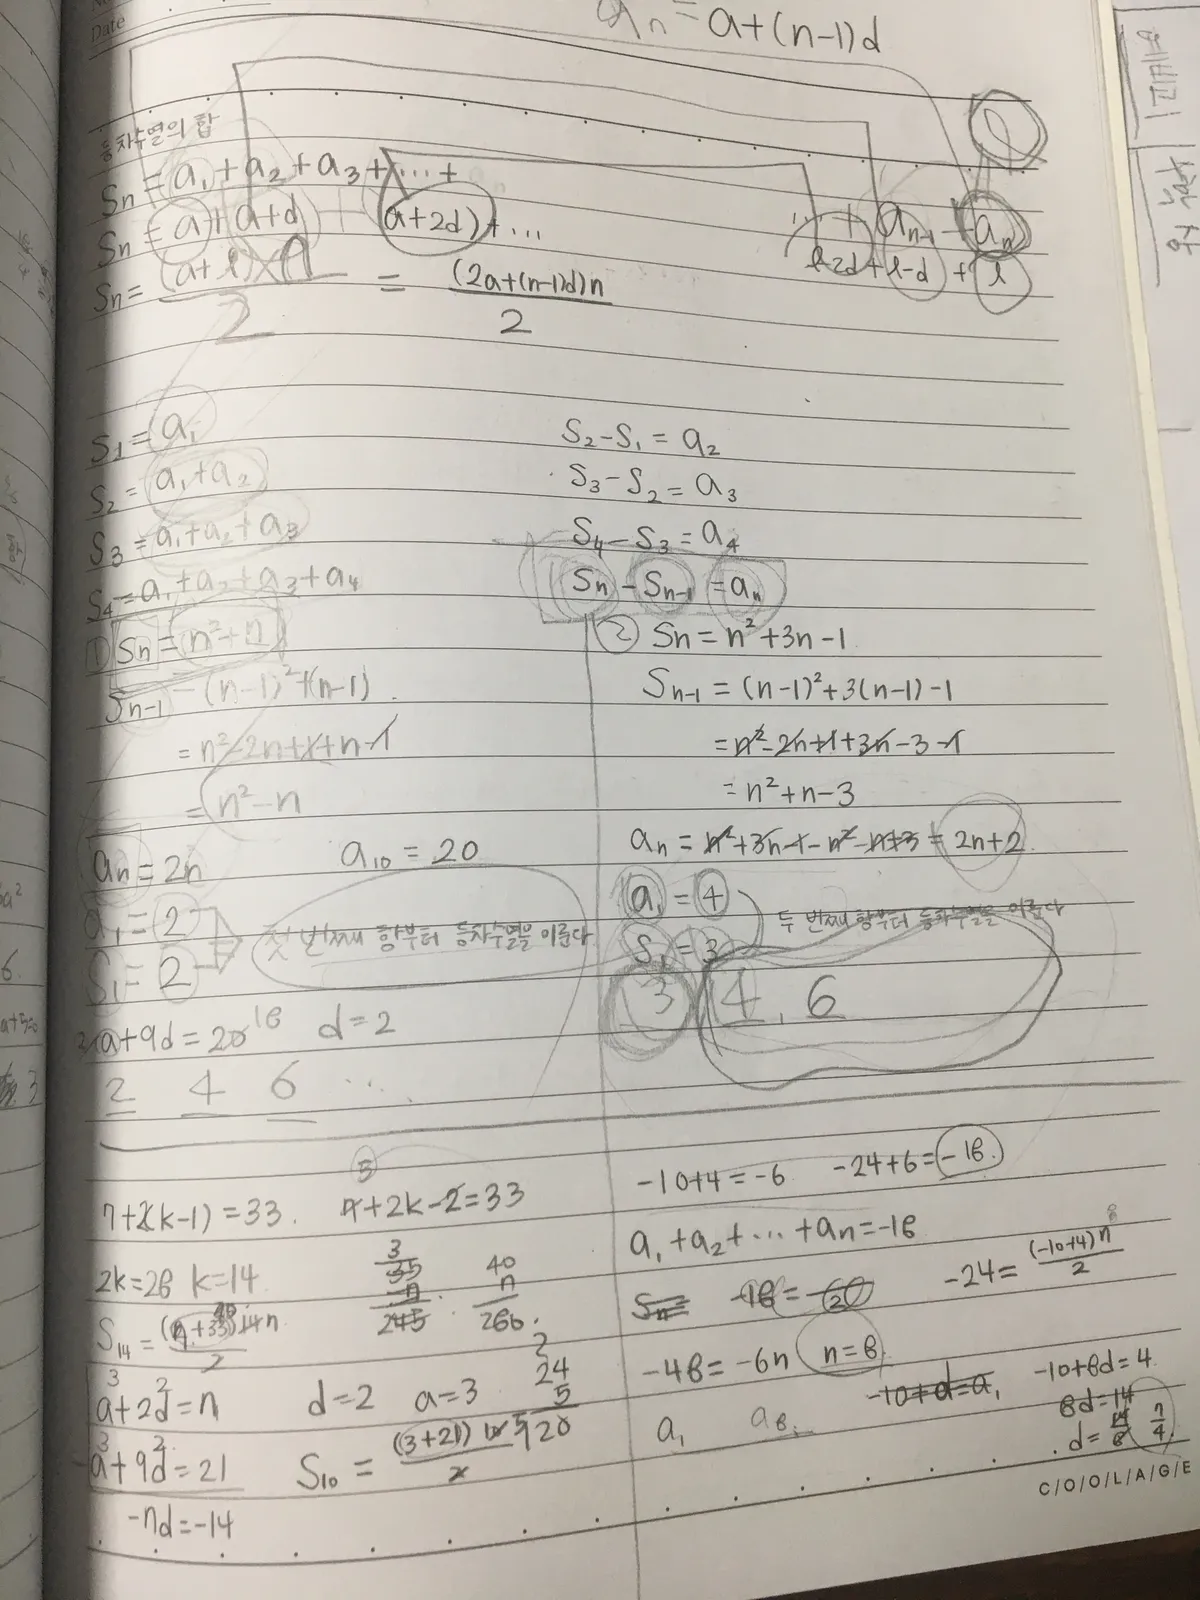 Date
an = a+(n-1)d
등차수열의 합
Sn = a1 + a2 + a3 + ... +
Sn = a + (a+d) + (a+2d) + ... + an-1 + an
l-2d + l-d + l
Sn = (a+l)×n / 2 = (2a+(n-1)d)n / 2
S1 = a1
S2 = a1+a2
S3 = a1+a2+a3
S4 = a1+a2+a3+a4
S2-S1 = a2
S3-S2 = a3
S4-S3 = a4
Sn-Sn-1 = an
① Sn = n²+n
Sn-1 = (n-1)²+(n-1)
= n²-2n+1+n-1
= n²-n
an = 2n a10 = 20
a1 = 2
S1 = 2
첫 번째 항부터 등차수열을 이룬다
a+9d = 20 18 d=2
2 4 6 ...
② Sn = n²+3n-1
Sn-1 = (n-1)²+3(n-1)-1
= n²-2n+1+3n-3-1
= n²+n-3
an = n²+3n-1-n²-n+3 = 2n+2
a1 = 4
S1 = 3
두 번째 항부터 등차수열을 이룬다
3 4, 6
7+2(k-1) = 33. 7+2k-2=33
5
2k=28 k=14
35
7
245
40
7
280.
S14 = (7+33)14 / 2
a+2d=7 d=2 a=3
24
5
120
a+9d=21 S10 = (3+21) 10 / 2
-7d=-14
-10+4=-6 -24+6=-18.
a1+a2+...+an=-18
-24= (-10+4)n / 2
-48=-6n n=8
-10+d=a1 -10+8d=4
a1 a8. 8d=14
d= 14/8 7/4
C/O/O/L/A/G/E